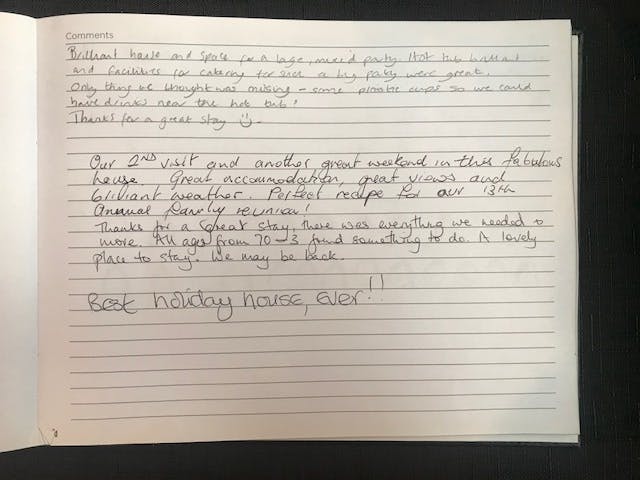 Comments
Brilliant house and space for a large, mixed party. Hot tub brilliant
and facilities for catering for such a big party were great.
Only thing we thought was missing - some plastic cups so we could
have drinks near the hot tub!
Thanks for a great stay ☺.
Our 2ND visit and another great weekend in this fabulous
house. Great accommodation, great views and
brilliant weather. Perfect recipe for our 13th
Annual family reunion!
Thanks for a great stay, there was everything we needed &
more. All ages from 70-3 found something to do. A lovely
place to stay. We may be back.
Best holiday house, ever!!